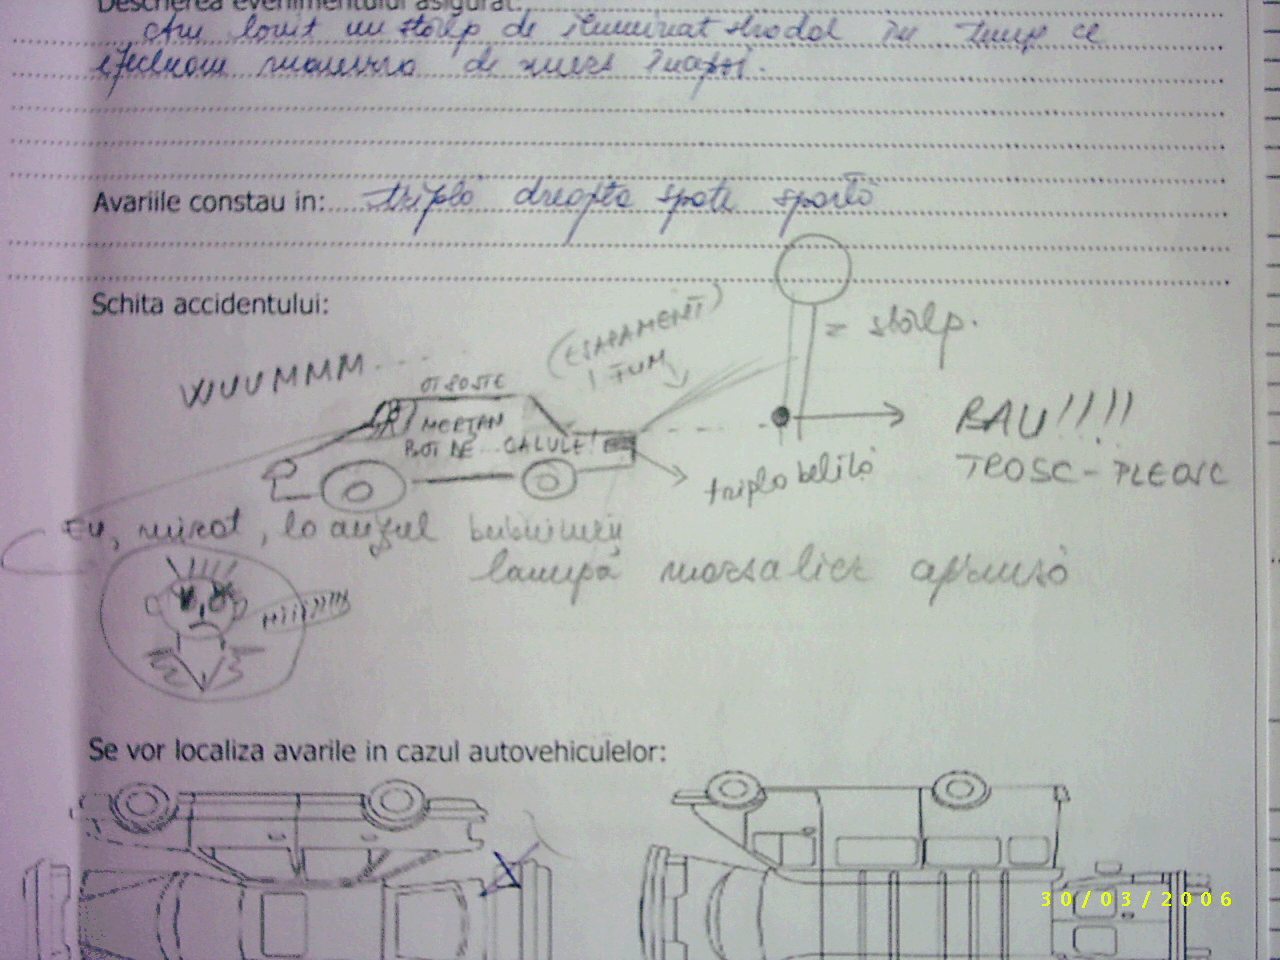 Descrierea evenimentului asigurat:
Am lovit un stâlp de iluminat stradal în timp ce
efectuam manevra de mers înapoi.
Avariile constau in: tripla dreapta spate spartă
Schita accidentului:
(ESAPAMENT)
! FUM
= stâlp.
WUUMMM...
BAU!!!!
BOT DE CALULE!
TROSC-PLEOSC
tripla belită
Eu, mirat, la auzul bubuiturii
lampă marsalier aprinsă
HIII????
Se vor localiza avarile in cazul autovehiculelor:
30/03/2006